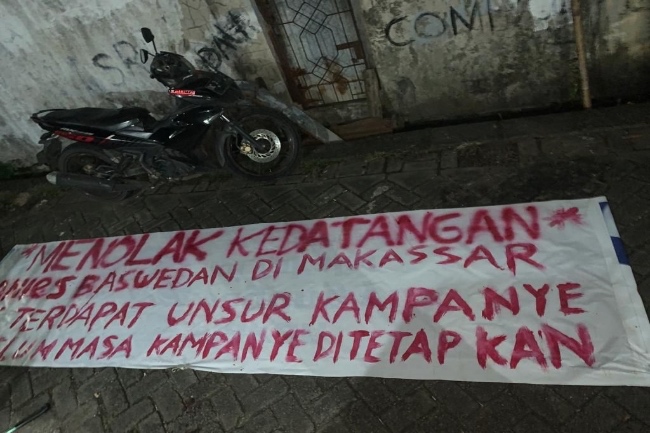 COM
*MENOLAK KEDATANGAN*
ANies BASWEDAN DI MAKASSAR
TERDAPAT UNSUR KAMPANYE
LUM MASA KAMPANYE DITETAPKAN